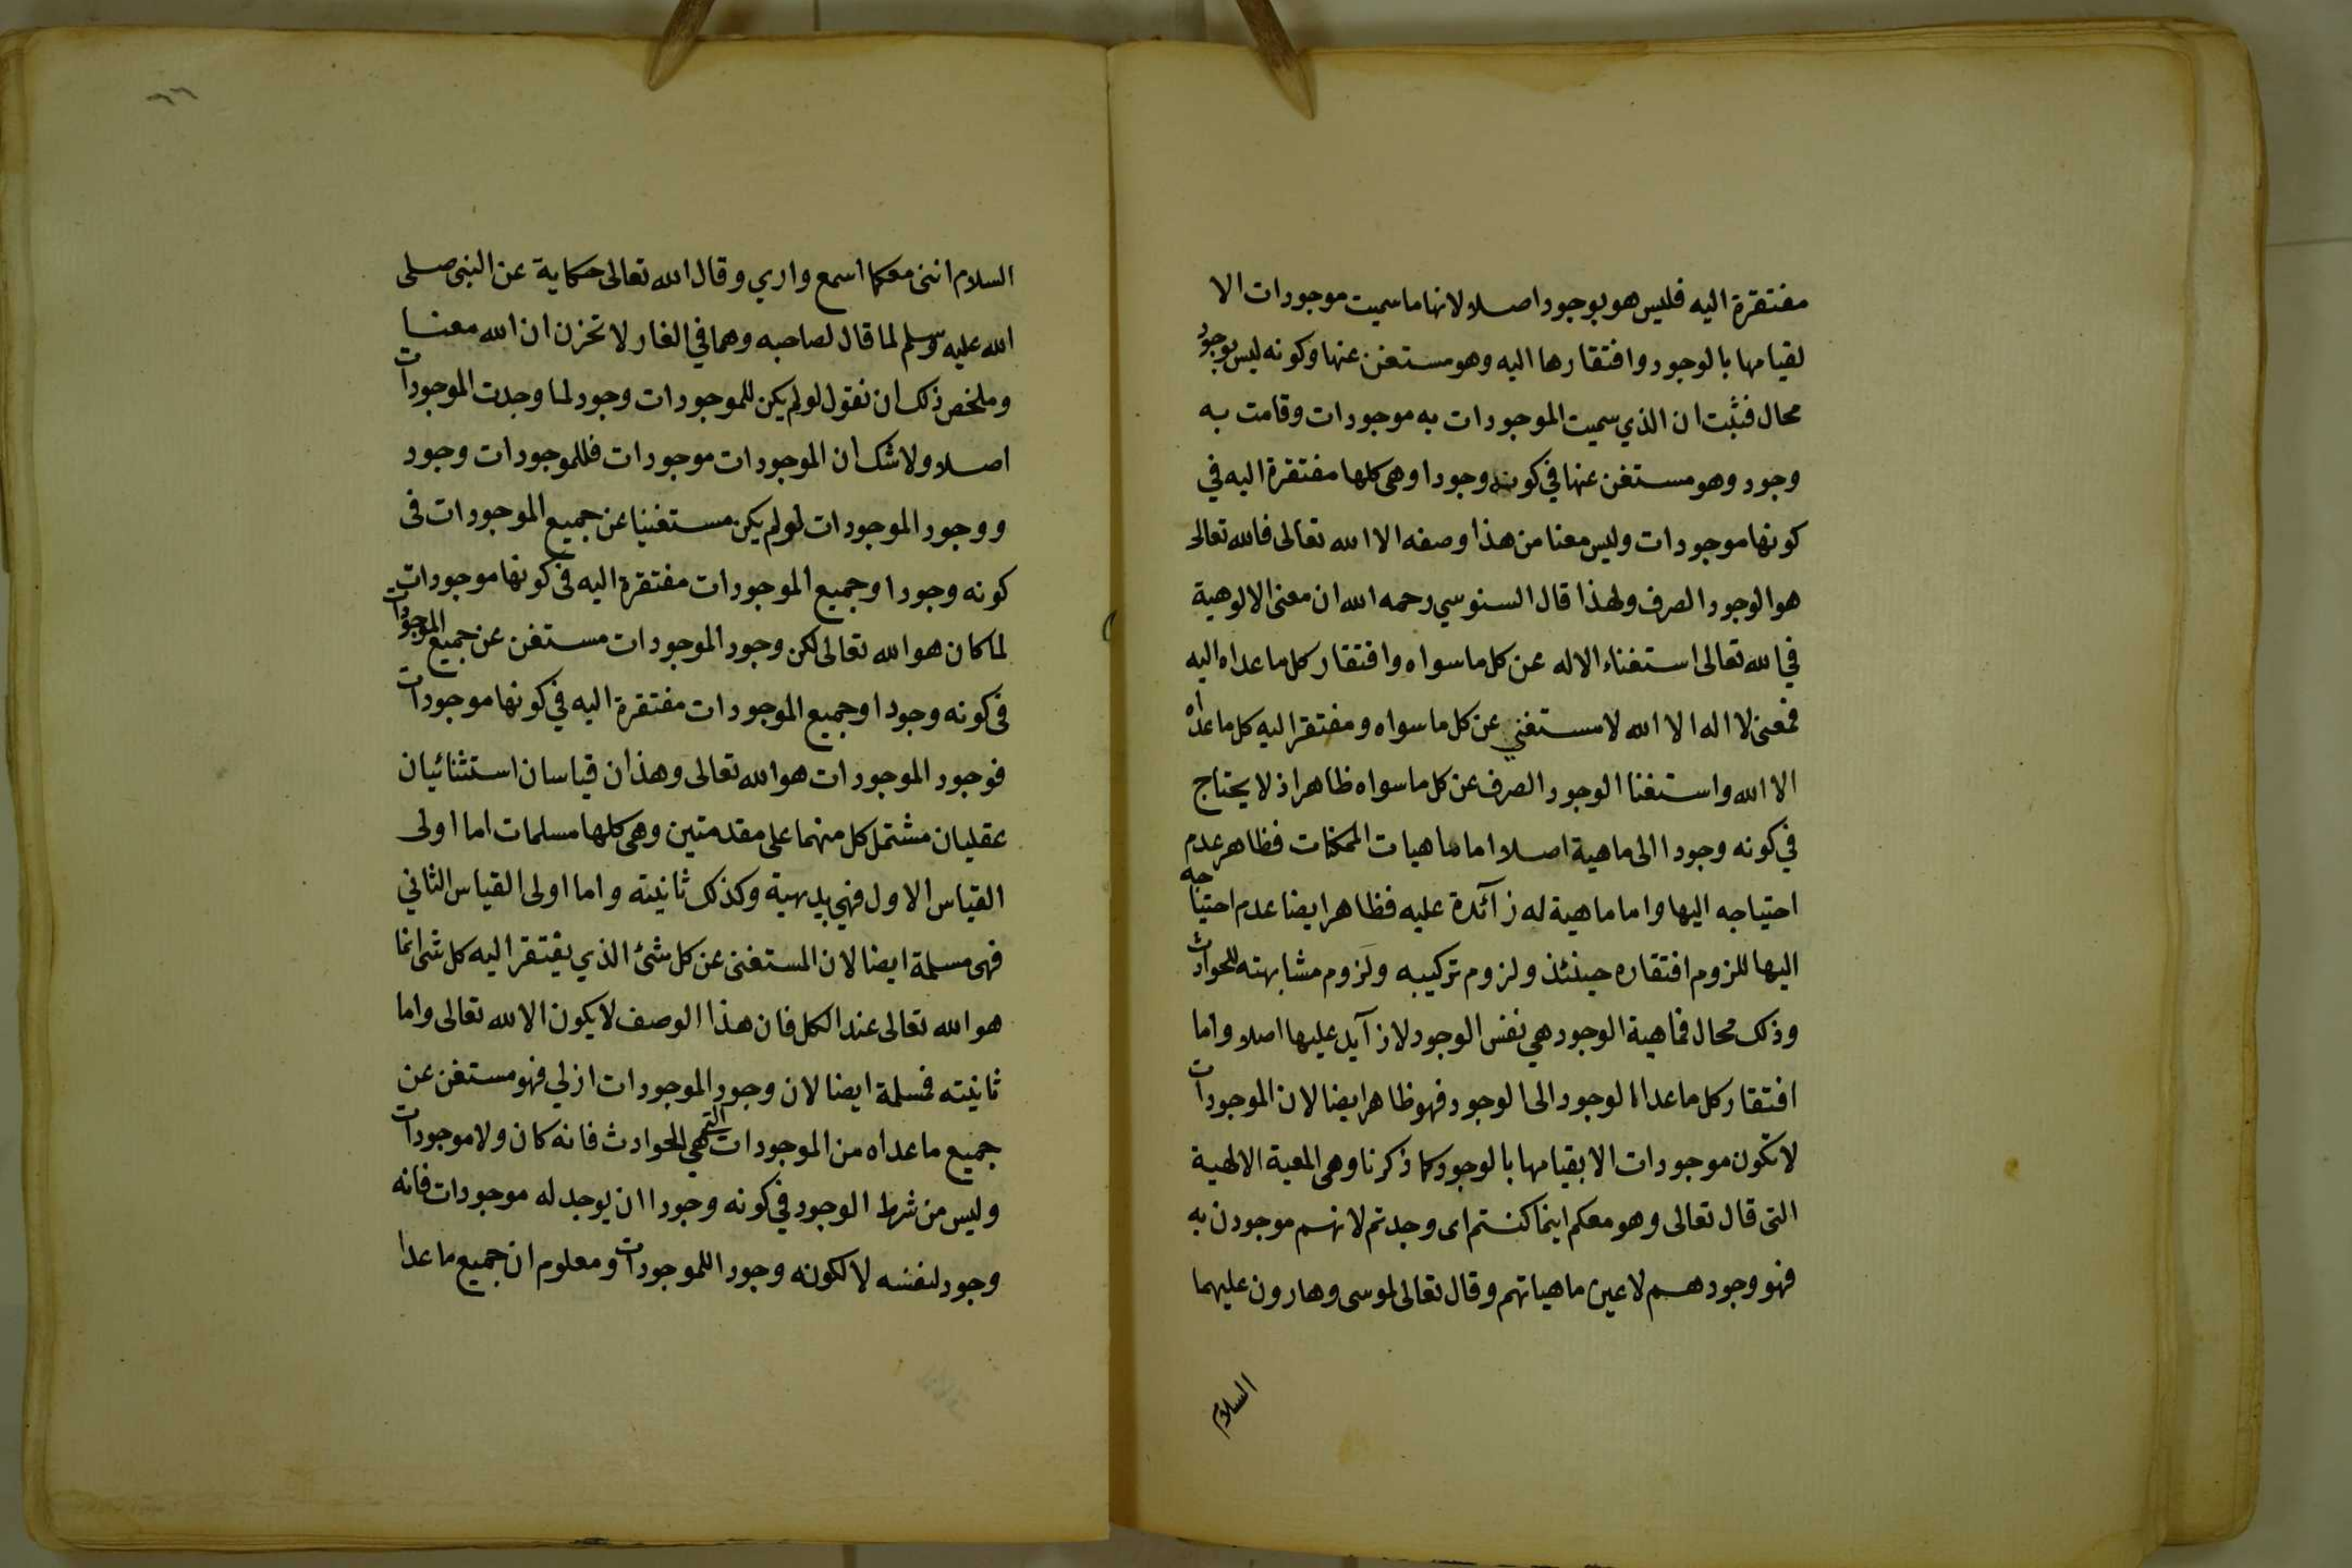 مفتقرة اليه فليس هو بوجود اصلا لانها ما سميت موجودات الا
لقيامها بالوجود وافتقارها اليه وهو مستغن عنها وكونه ليس بوجود
محال فثبت ان الذي سميت الموجودات به موجودات وقامت به
وجود وهو مستغن عنها في كونه وجودا وهي كلها مفتقرة اليه في
كونها موجودات وليس معنا من هذا وصفه الا الله تعالى فالله تعالى
هو الوجود الصرف ولهذا قال السنوسي رحمه الله ان معنى الالوهية
في الله تعالى استغناء الاله عن كل ما سواه وافتقار كل ما عداه اليه
فمعنى لا اله الا الله لا مستغني عن كل ما سواه ومفتقر اليه كل ما عداه
الا الله واستغنا الوجود الصرف عن كل ما سواه ظاهر اذ لا يحتاج
في كونه وجودا الى ماهية اصلا اما ماهيات الممكنات فظاهر عدم
احتياجه اليها واما ماهية له زآئدة عليه فظاهر ايضا عدم احتياجه
اليها للزوم افتقاره حينئذ ولزوم تركيبه ولزوم مشابهته للحوادث
وذلك محال فماهية الوجود هي نفس الوجود لا زآيد عليها اصلا واما
افتقار كل ما عدا الوجود الى الوجود فهو ظاهر ايضا لان الموجودات
لا تكون موجودات الا بقيامها بالوجود كما ذكرنا وهي المعية الالهية
التى قال تعالى وهو معكم اينما كنتم اى وجدتم لانهم موجودن به
فهو وجودهم لا عين ماهياتهم وقال تعالى لموسى وهارون عليهما
السلام
٦٦
السلام انني معكما اسمع واري وقال الله تعالى حكاية عن النبى صلى
الله عليه وسلم لما قال لصاحبه وهما في الغار لا تحزن ان الله معنا
وملخص ذلك ان نقول لو لم يكن للموجودات وجود لما وجدت الموجودات
اصلا ولا شك ان الموجودات موجودات فللموجودات وجود
ووجود الموجودات لو لم يكن مستغنيا عن جميع الموجودات في
كونه وجودا وجميع الموجودات مفتقرة اليه في كونها موجودات
لما كان هو الله تعالى لكن وجود الموجودات مستغن عن جميع الموجودات
في كونه وجودا وجميع الموجودات مفتقرة اليه في كونها موجودات
فوجود الموجودات هو الله تعالى وهذان قياسان استثنائيان
عقليان مشتمل كل منهما على مقدمتين وهي كلها مسلمات اما اولى
القياس الاول فهي بديهية وكذلك ثانيته واما اولى القياس الثاني
فهى مسلمة ايضا لان المستغنى عن كل شئ الذي يفتقر اليه كل شى انما
هو الله تعالى عند الكل فان هذا الوصف لا يكون الا لله تعالى واما
ثانيته فمسلمة ايضا لان وجود الموجودات ازلي فهو مستغن عن
جميع ما عداه من الموجودات التي هي الحوادث فانه كان ولا موجودات
وليس من شرط الوجود في كونه وجودا ان يوجد له موجودات فانه
وجود لنفسه لا لكونه وجودا للموجودات ومعلوم ان جميع ما عدا